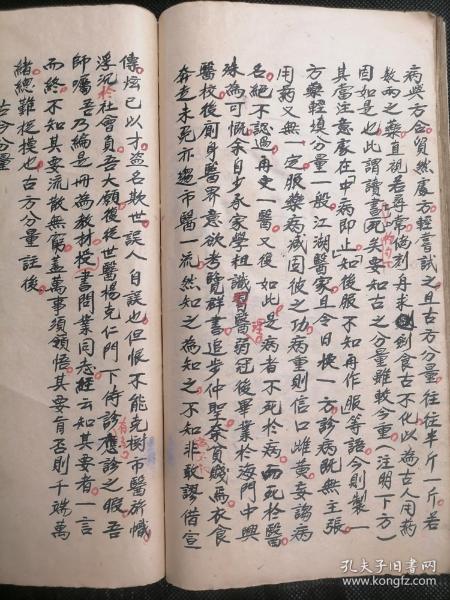 病與方合貿然處方輕嘗試之且古方分量往往半斤一斤若
數兩之藥直視若尋常倘刻舟求劍食古不化以為古人用药
固如是也此謂讀書死矣要知古之分量雖較今重(注明下方)
其當注意處在「中病即止」知後服不知再作服等語今則製一
方藥輕填分量一般江湖醫家且今日快一方診病既無主張
用药又無一定服藥病减固彼之功病重則信口雌黄妄謂病
名絕不認過再更一醫又復如此是病者不死於病而死於醫
殊為可慨余自步承家學粗識醫弱冠後畢業於海門中興
醫校後厠身醫界意欲考覽群書追步仲聖奈負賤為衣食
奔走未死亦趨市醫一流然知之為知之不知非敢謬借宣
傳炫己以才盗名欺世誤人自誤也但恨不能克樹市醫新幟
浮沉於社會員吾大願後從世醫楊克仁門下侍診應診之暇吾
師囑吾乃編是冊為教材授書問業同志經云知其要者一言
而終不知其要流散無窮蓋萬事須領悟其要肯否則千端萬
緒總難捉摸也古方分量註後
古今分量
孔夫子旧书网